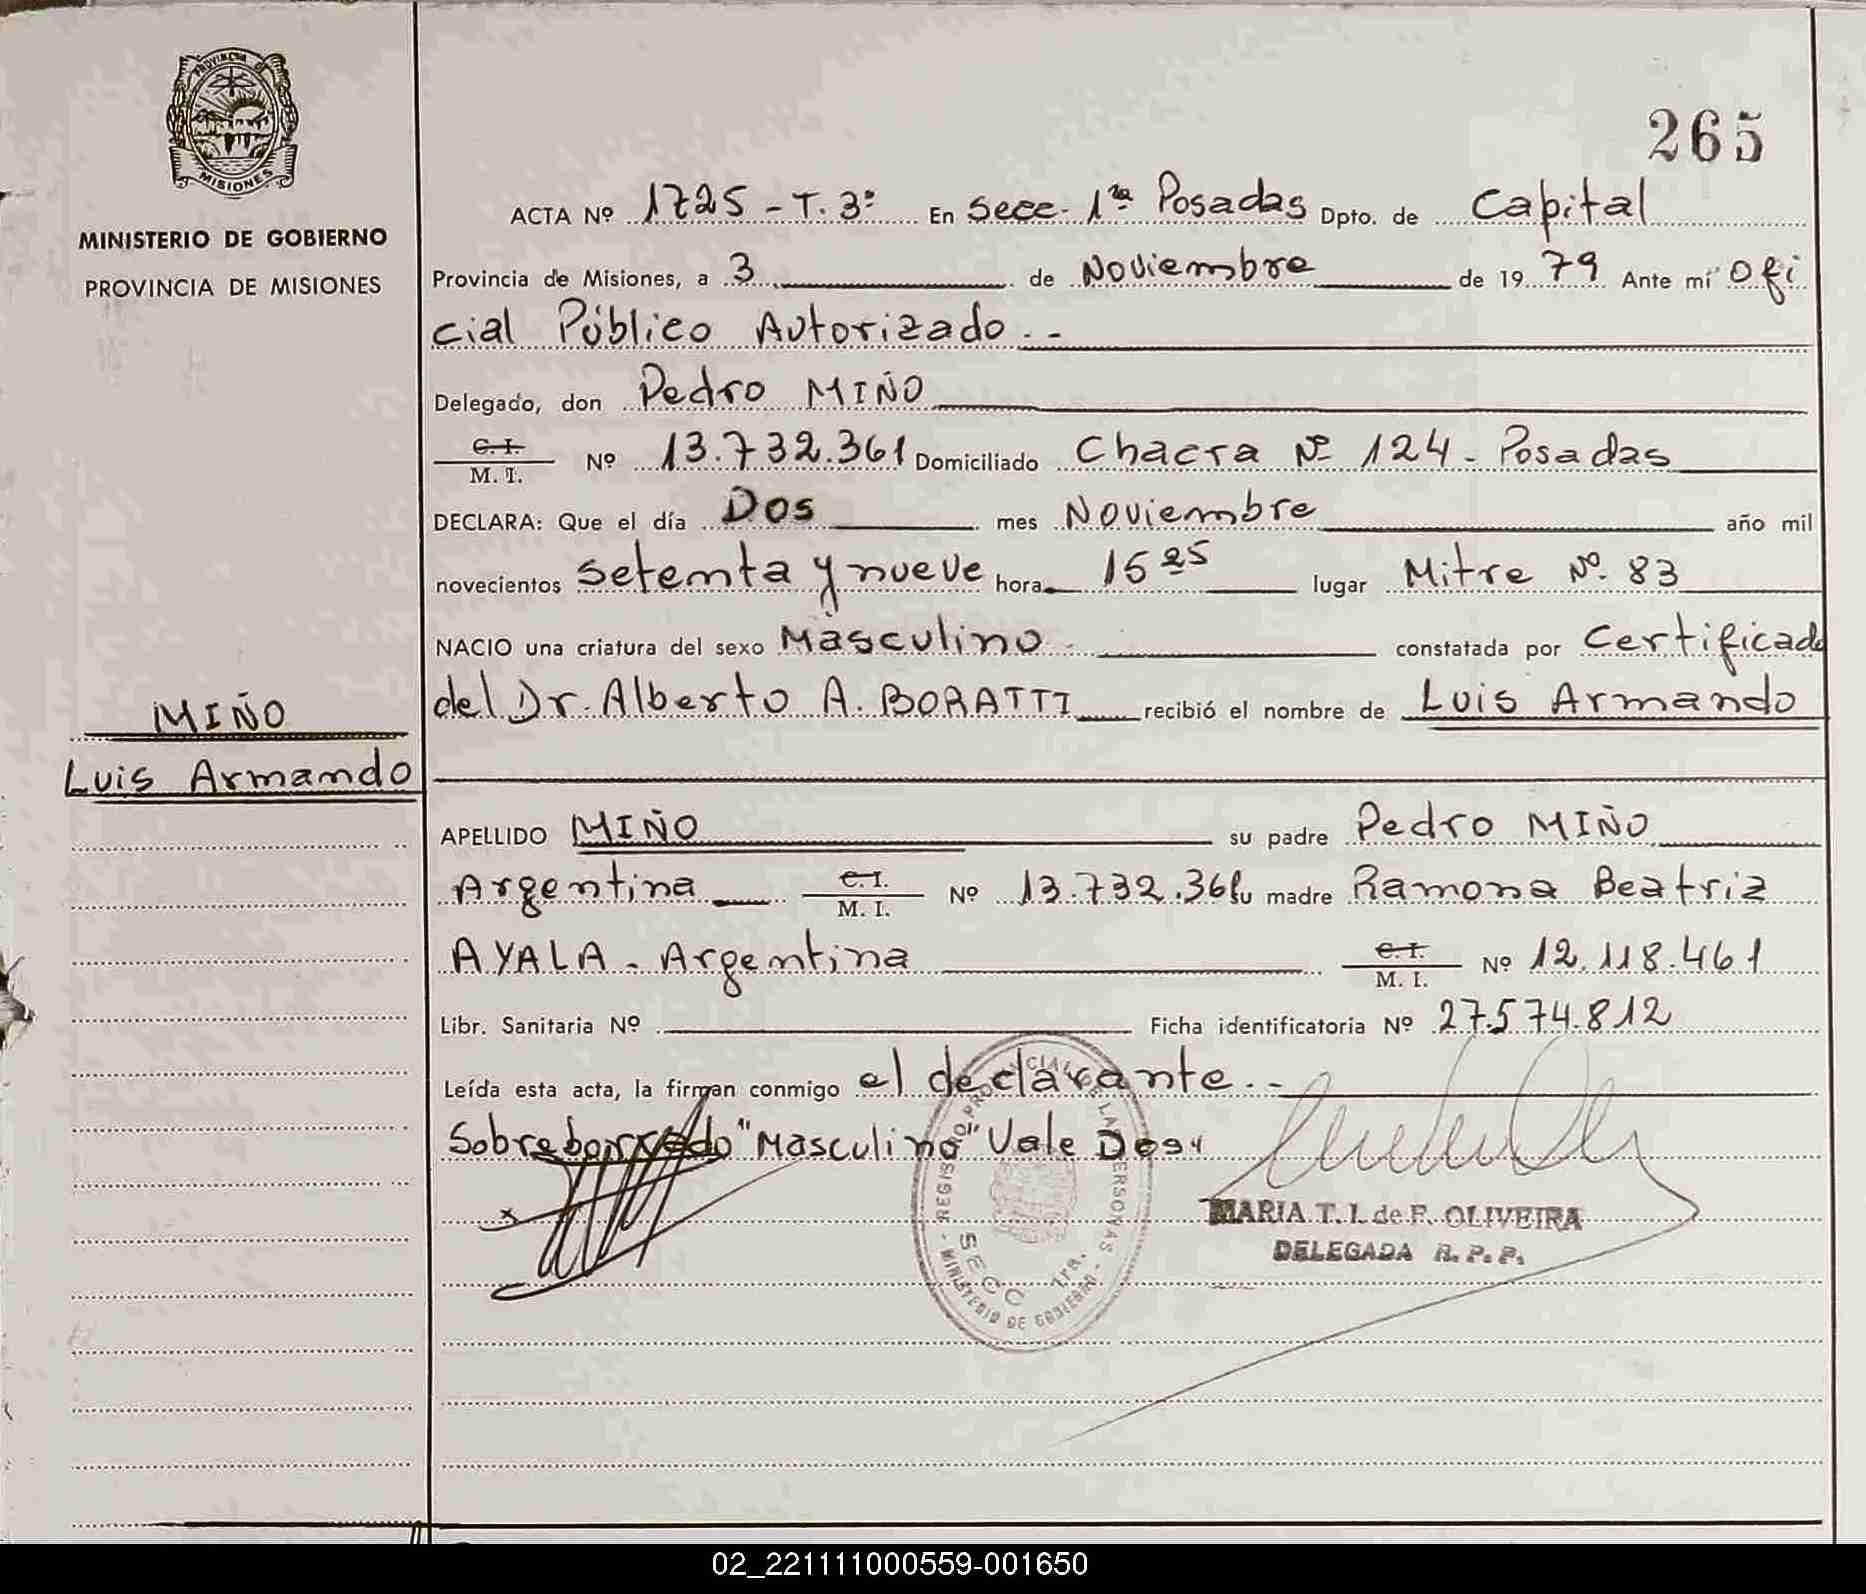 PROVINCIA DE
MISIONES
MINISTERIO DE GOBIERNO
PROVINCIA DE MISIONES
MIÑO
Luis Armando
265
ACTA Nº 1725 - T. 3º En Secc. 1ra Posadas Dpto. de Capital
Provincia de Misiones, a 3 de Noviembre de 1979 Ante mí Ofi
cial Público Autorizado.-
Delegado, don Pedro MIÑO
C. I.
M. I. Nº 13.732.361 Domiciliado Chacra Nº 124 - Posadas
DECLARA: Que el día Dos mes Noviembre año mil
novecientos setenta y nueve hora 15 25 lugar Mitre Nº. 83
NACIO una criatura del sexo Masculino constatada por Certificado
del Dr. Alberto A. BORATTI recibió el nombre de Luis Armando
APELLIDO MIÑO su padre Pedro MIÑO
Argentina C. I.
M. I. Nº 13.732.361 su madre Ramona Beatriz
AYALA - Argentina C. I.
M. I. Nº 12.118.461
Libr. Sanitaria Nº Ficha identificatoria Nº 27.574.812
Leída esta acta, la firman conmigo el declarante.-
Sobreborrado "Masculino" Vale Dos
REGISTRO PROVINCIAL DE LAS PERSONAS
SECC 1ra.
MINISTERIO DE GOBIERNO
MARIA T. I. de F. OLIVEIRA
DELEGADA R. P. P.
02_221111000559-001650